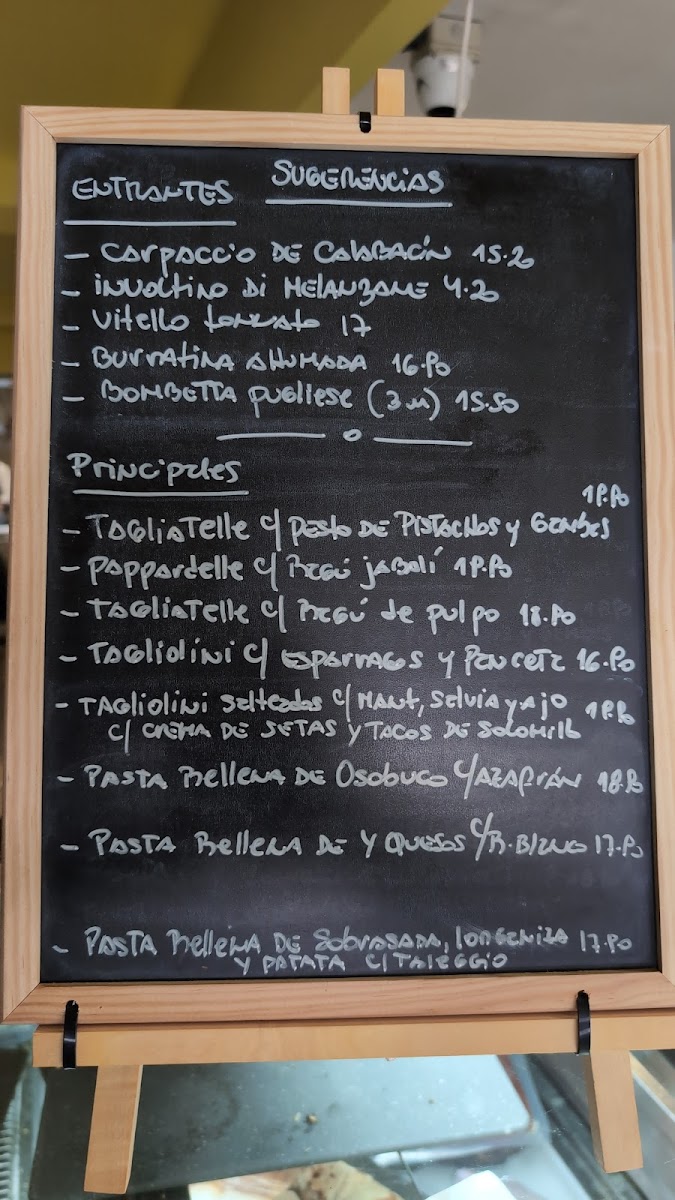 SUGERENCIAS
ENTRANTES
- CARPACCIO DE CALABACÍN 15.20
- INVOLTINO DI MELANZANE 4.20
- VITELLO TONNATO 17
- BURRATINA AHUMADA 16.90
- BOMBETTA PUGLIESE (3 u) 15.50
PRINCIPALES
19.90
- TAGLIATELLE C/ PESTO DE PISTACHOS y GAMBAS
- PAPPARDELLE C/ RAGÚ JABALÍ 19.90
- TAGLIATELLE C/ RAGÚ de pulpo 18.90
- TAGLIOLINI C/ ESPARRAGOS y PANCETA 16.90
- TAGLIOLINI SALTEADOS C/ MANT, SALVIA y AJO 19.90
C/ CREMA DE SETAS y TACOS DE SOLOMILLO
- PASTA RELLENA DE OSOBUCO C/AZAFRÁN 18.90
- PASTA RELLENA DE 4 QUESOS C/R. BIANCO 17.90
- PASTA RELLENA DE SOBRASADA, LONGANIZA 17.90
y PATATA C/ TALEGGIO